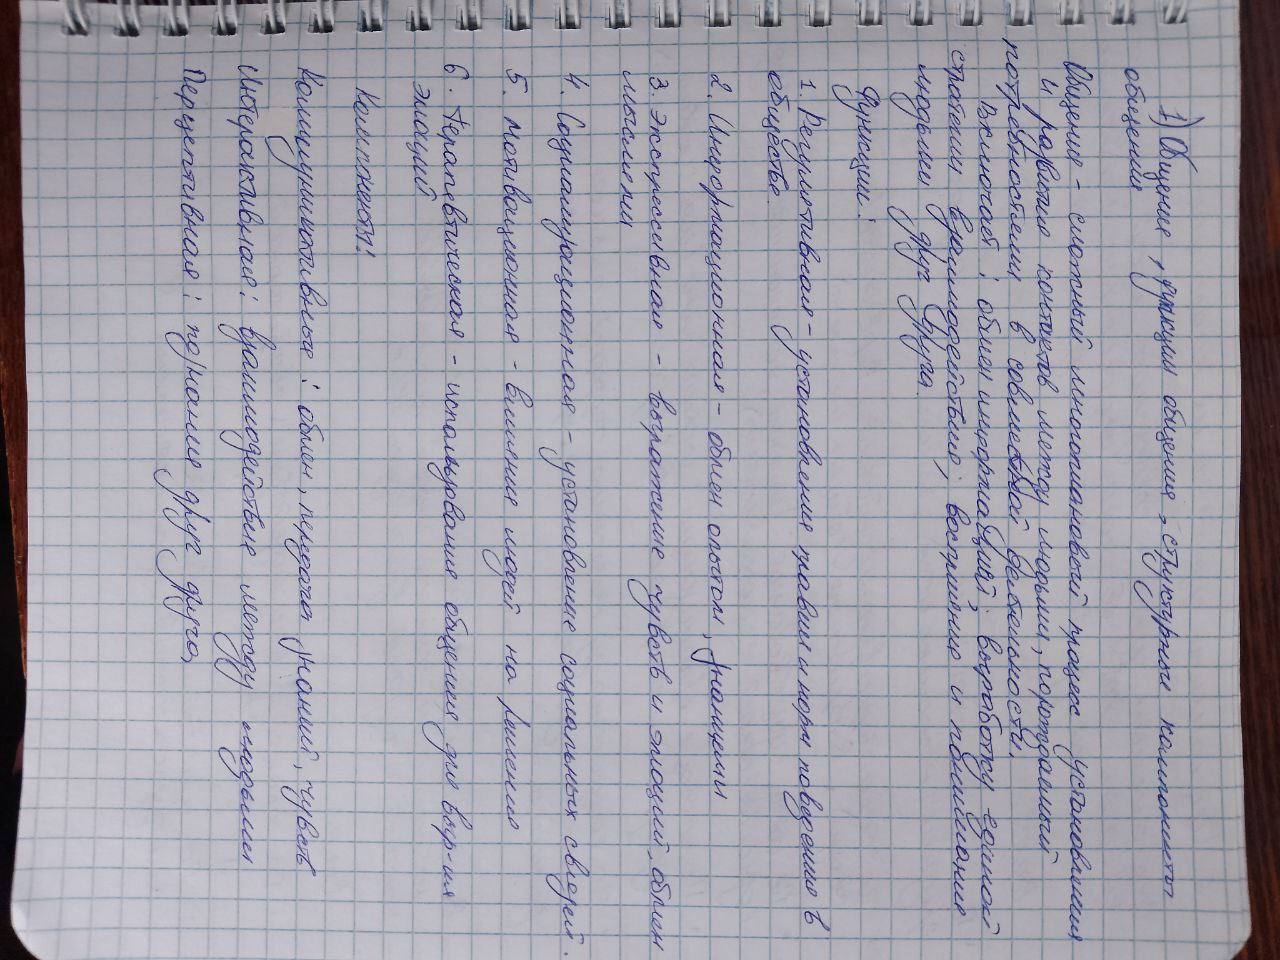 1) Общение, функции общения, структурные компоненты
общения
Общение - сложный многоплановый процесс установления
и развития контактов между людьми, порождаемый
потребностями в совместной деятельности.
Включает: обмен информацией; выработку единой
стратегии взаимодействие; восприятие и понимание
людьми друг друга
Функции:
1. Регулятивная - установления правил и норм поведение в
обществе.
2. Информационная - обмен опытом, знаниями
3. Экспрессивная - выражение чувств и эмоций, обмен
мыслями
4. Социализационная - установление социальных связей.
5. Мотивационная - влияние людей на решения
6. Терапевтическая - использования общения для выр-ия
эмоций
Компоненты:
Коммуникативные: обмен, передача знаний, чувств
Интерактивная: взаимодействие между людьми
Перцептивная: познание друг друга,